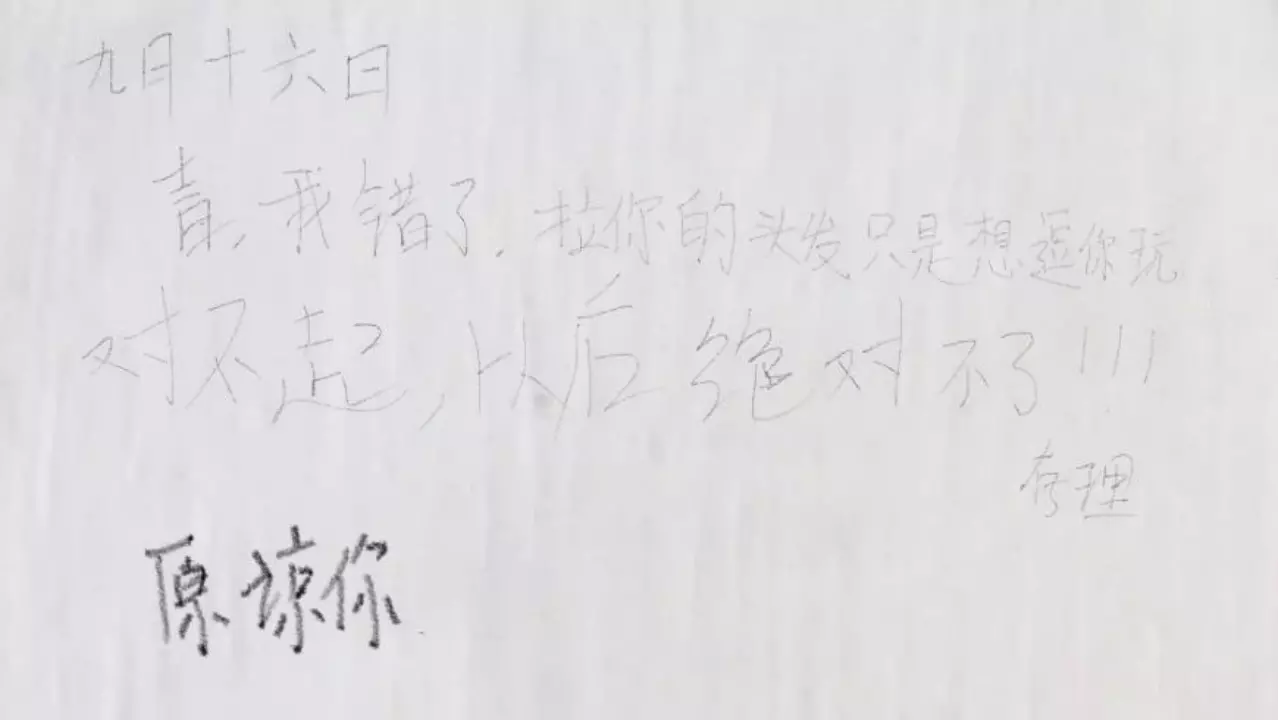 九月十六日
青,我错了.拉你的头发只是想逗你玩
对不起,以后绝对不了!!!
存理
原谅你